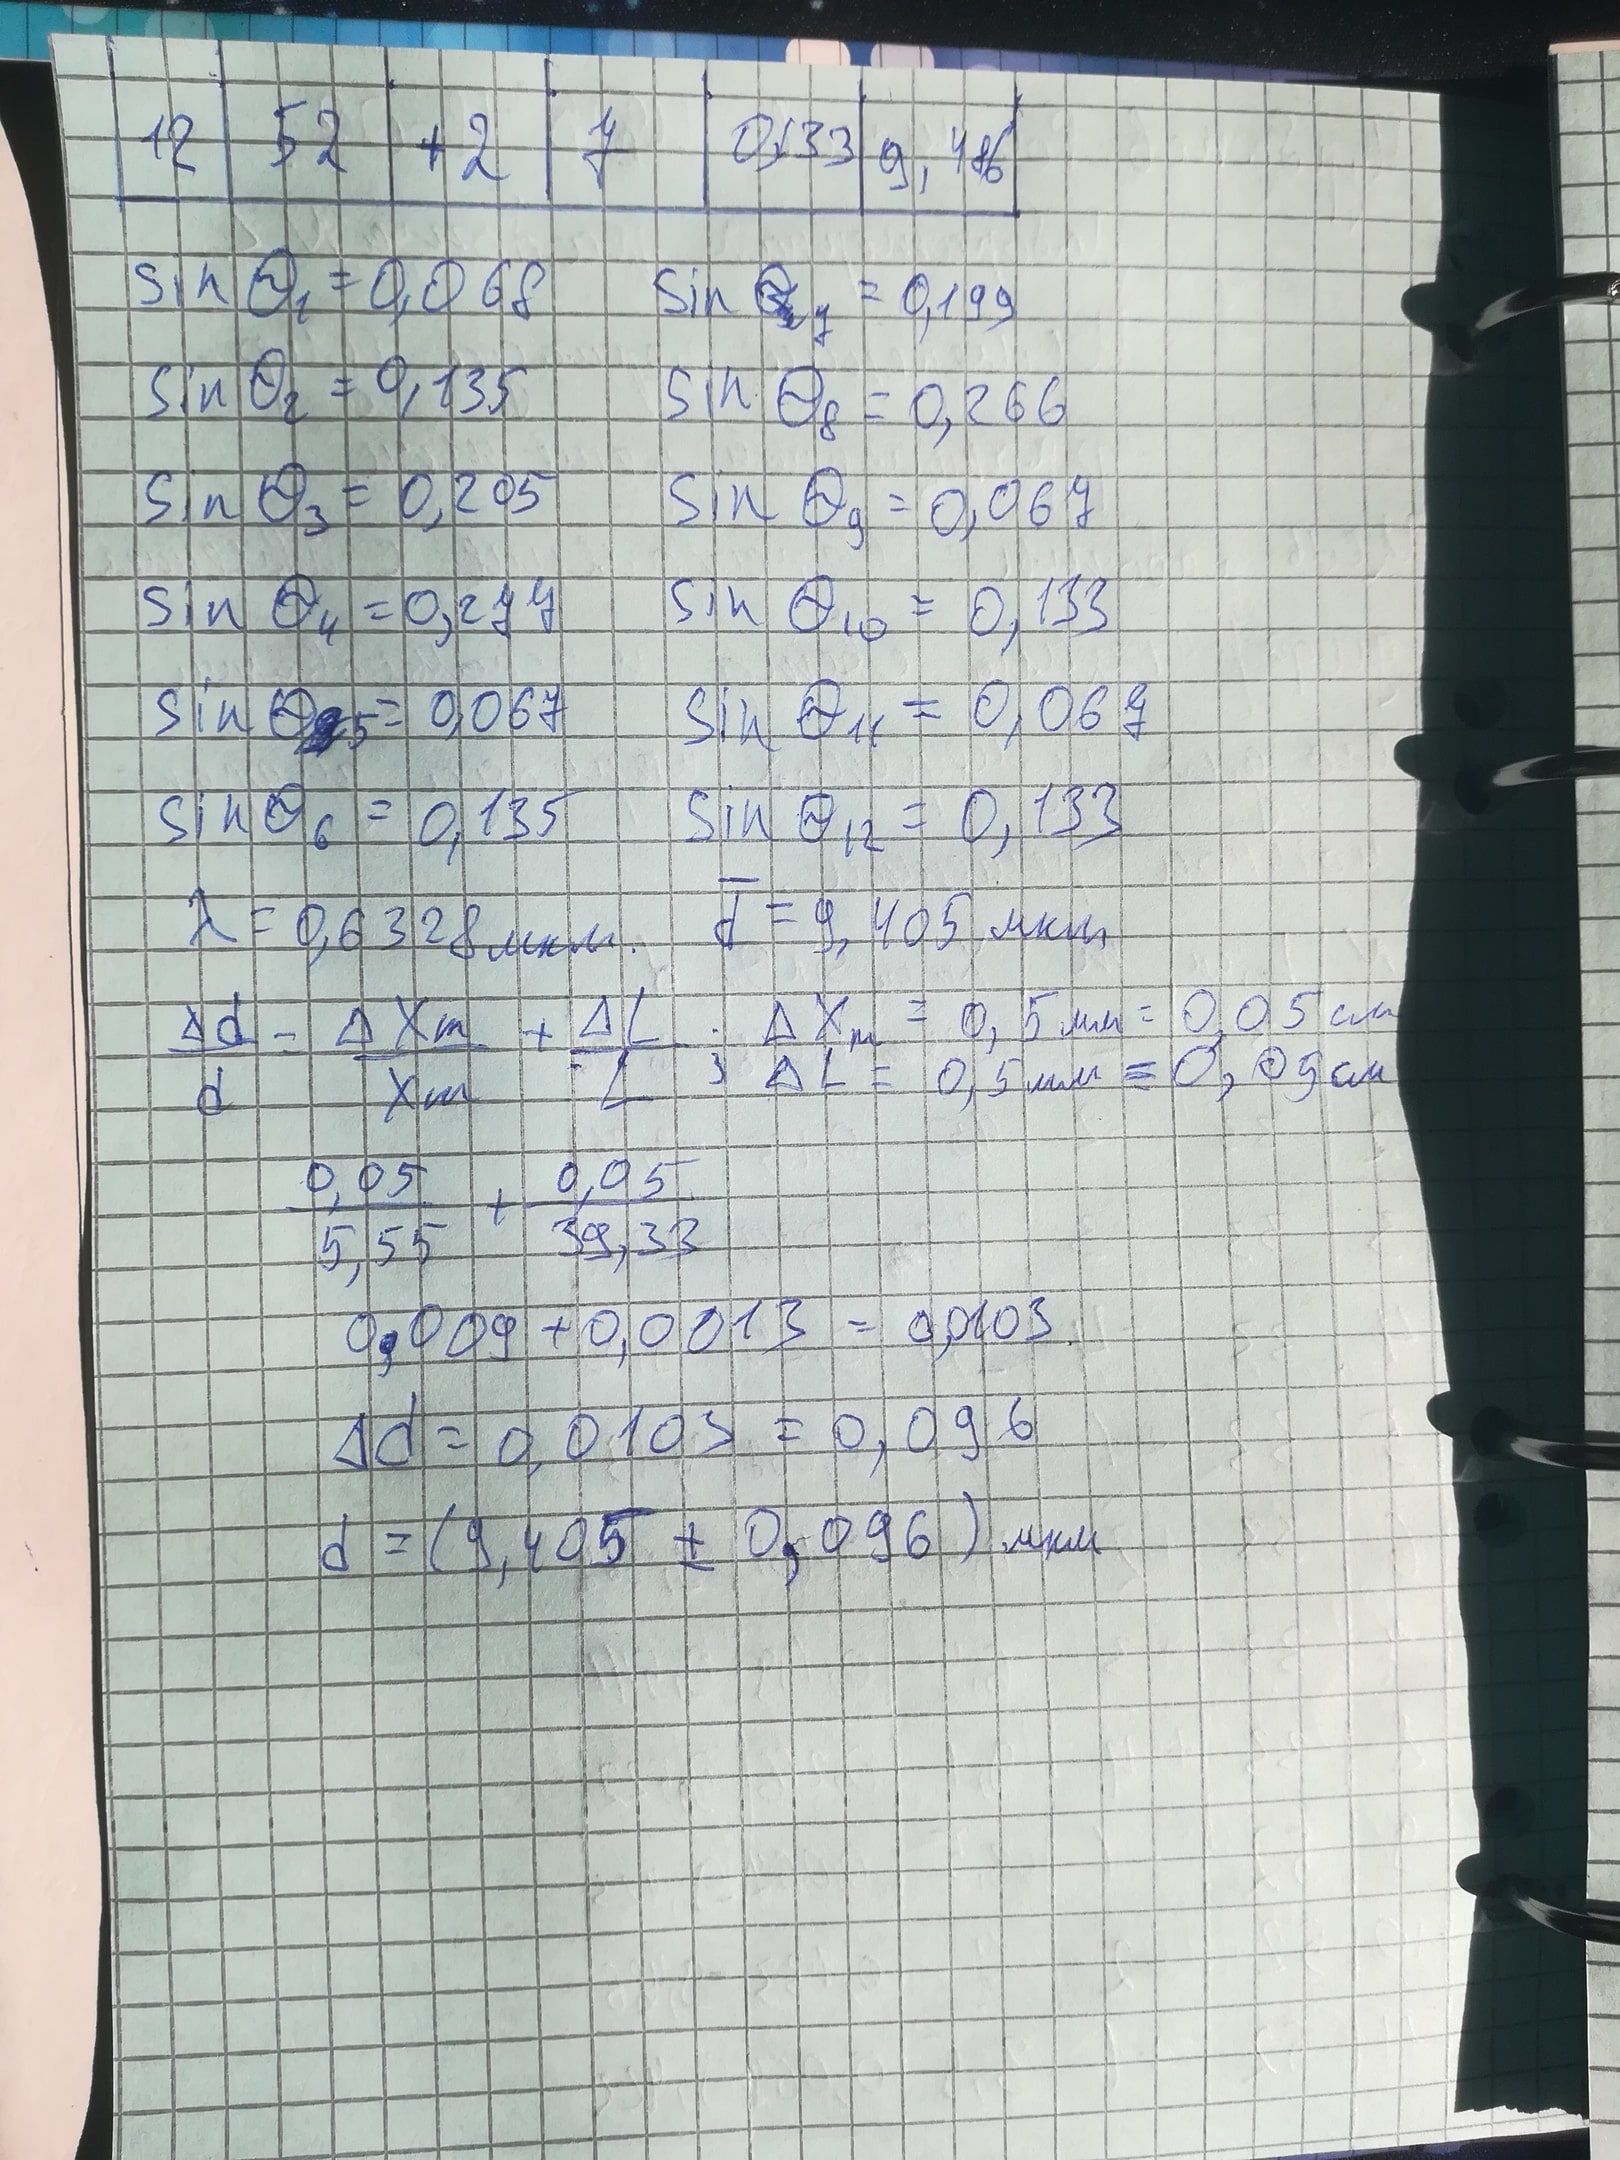 12 52 +2 7 0,133 9,486
sin θ₁ = 0,068 sin θ₇ = 0,199
sin θ₂ = 0,135 sin θ₈ = 0,266
sin θ₃ = 0,205 sin θ₉ = 0,067
sin θ₄ = 0,277 sin θ₁₀ = 0,133
sin θ₅ = 0,067 sin θ₁₁ = 0,067
sin θ₆ = 0,135 sin θ₁₂ = 0,133
λ = 0,6328 мкм. d̅ = 9,405 мкм
Δd/d = ΔXm/Xm + ΔL/L ; ΔXm = 0,5 мм = 0,05 см
ΔL = 0,5 мм = 0,05 см
0,05/5,55 + 0,05/39,33
0,009 + 0,0013 = 0,0103.
Δd = 0,0103 = 0,096
d = (9,405 ± 0,096) мкм